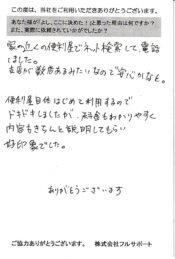 この度は、当社をご利用いただきありがとうございます。
あなた様が「よし、ここに決めた！」と思った理由は何ですか？
また、実際に依頼されていかがでしたか？
家の近くの便利屋でネット検索して電話
しました。
支店が数店あるみたいなので安心かなと。
便利屋自体はじめて利用するので
ドキドキしましたが、料金もわかりやすく
内容もきちんと説明してもらい
好印象でした。
ありがとうございます
ご協力ありがとうございます。 株式会社フルサポート